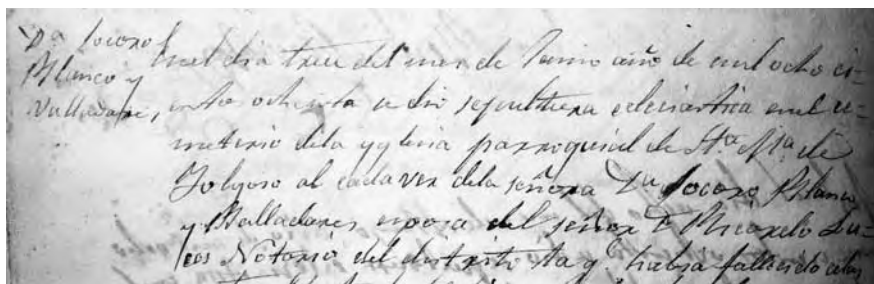 Dª Socoro
Blanco y
Valladare,
En el dia trece del mes de Junio año de mil ocho ci=
entos ochenta se dio sepultura eclesiastica en el ce=
metirio dela yglesia parroquial de Stª Mª de
Folgoso al cadaver dela señora Dª Socoro Blanco
y Balladares esposa del señor D
Notario del distrito q. habia fallecido